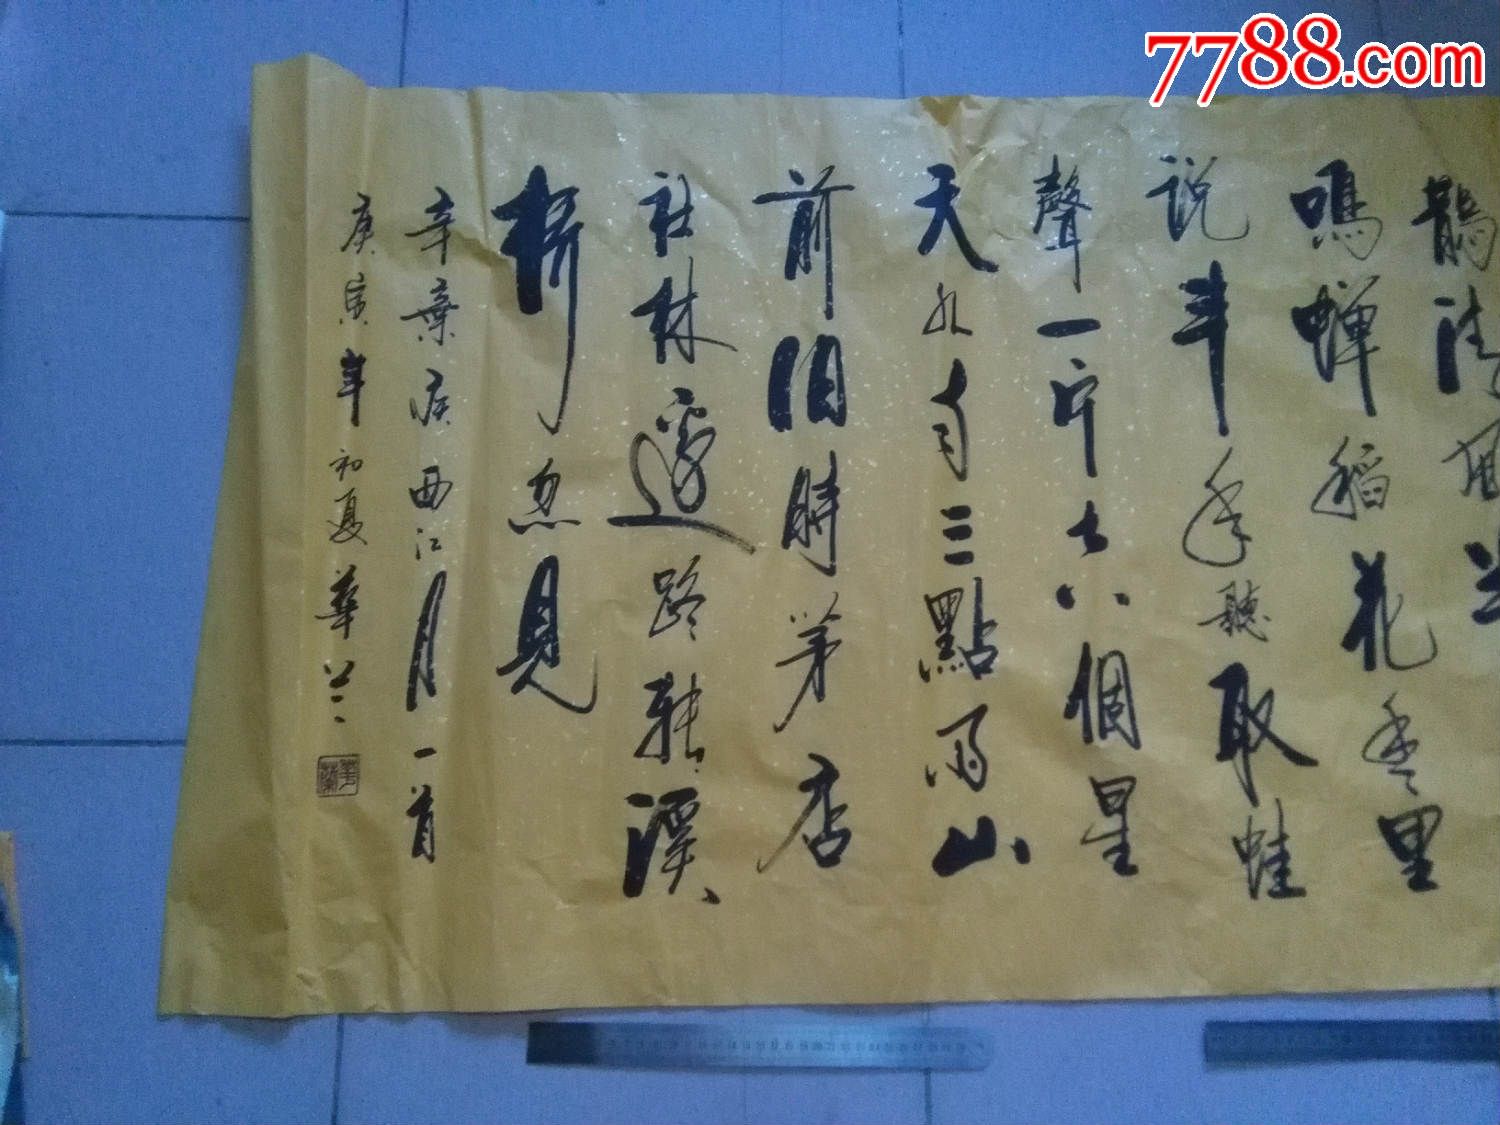 7788.com
鵲清風半
鳴蟬稻花香里
说丰年聽取蛙
聲一片七八個星
天外两三點雨山
前旧時茅店
社林邊路转溪
桥忽見
辛棄疾西江月一首
庚寅年初夏華兰